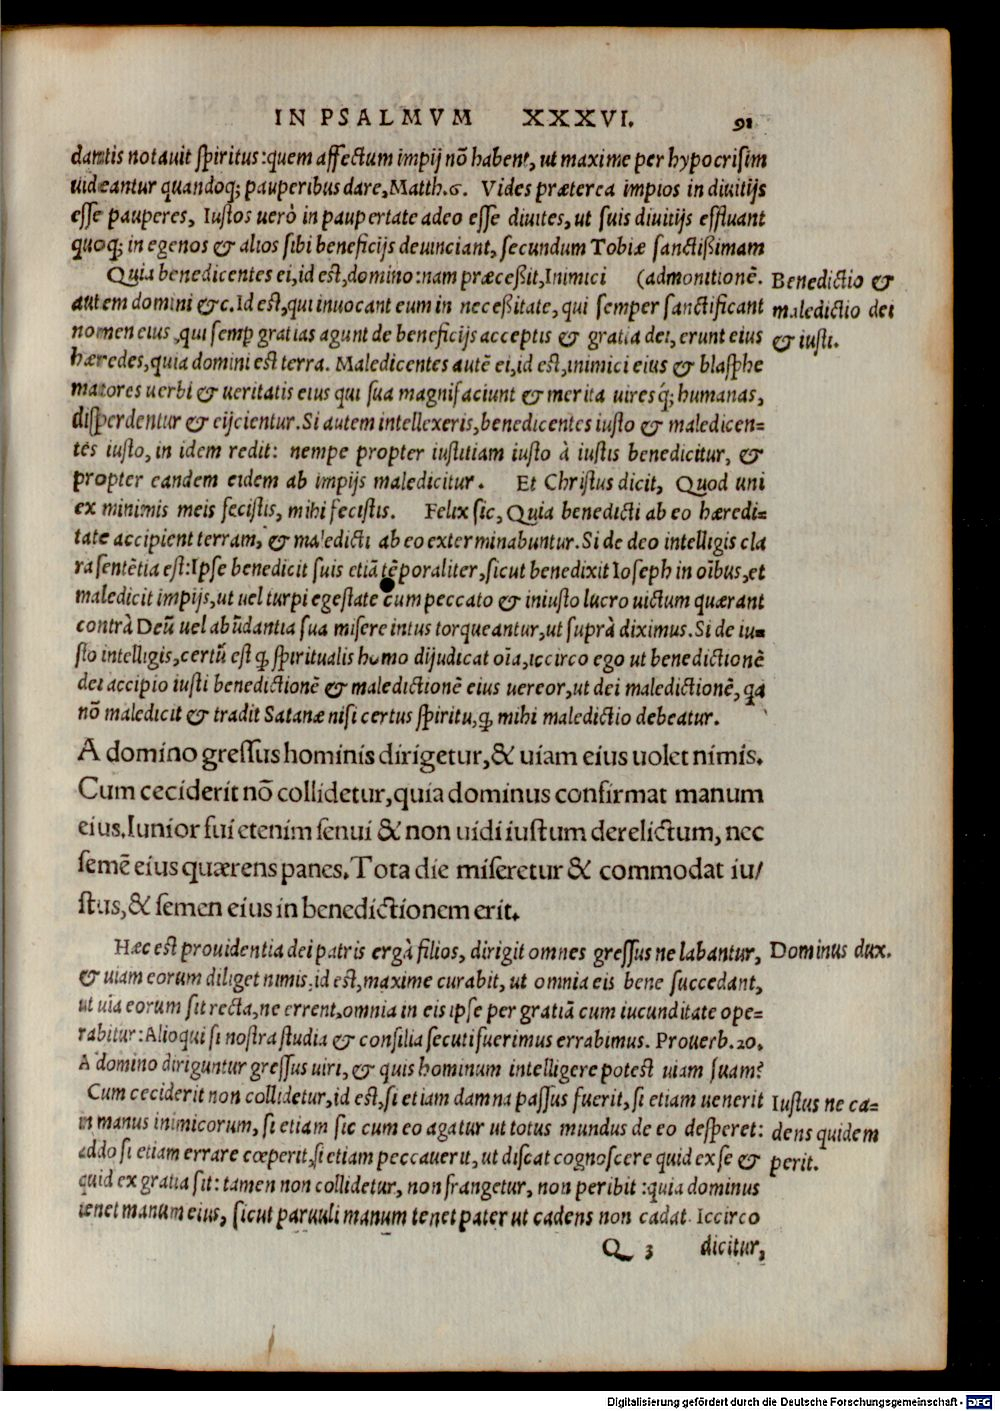 IN PSALMVM XXXVI. 91
dantis notauit spiritus: quem affectum impij nō habent, ut maxime per hypocrisim
uideantur quandoq; pauperibus dare, Matth.6. Vides præterea impios in diuitijs
esse pauperes, Iustos uerò in paupertate adeo esse diuites, ut suis diuitijs effluant
quoq; in egenos & alios sibi beneficijs deuinciant, secundum Tobiæ sanctißimam
Quia benedicentes ei, id est, domino: nam præceßit, Inimici (admonitionē.
autem domini &c. Id est, qui inuocant eum in neceßitate, qui semper sanctificant
nomen eius, qui semp gratias agunt de beneficijs acceptis & gratia dei, erunt eius
hæredes, quia domini est terra. Maledicentes autē ei, id est, inimici eius & blasphe
matores uerbi & ueritatis eius qui sua magnifaciunt & merita uiresq́; humanas,
disperdentur & eijcientur. Si autem intellexeris, benedicentes iusto & maledicen=
tes iusto, in idem redit: nempe propter iustitiam iusto à iustis benedicitur, &
propter eandem eidem ab impijs maledicitur. Et Christus dicit, Quod uni
ex minimis meis fecistis, mihi fecistis. Felix sic, Quia benedicti ab eo hæredi=
tate accipient terram, & maledicti ab eo exterminabuntur. Si de deo intelligis cla
ra sentētia est: Ipse benedicit suis etiā tēporaliter, sicut benedixit Ioseph in oībus, et
maledicit impijs, ut uel turpi egestate cum peccato & iniusto lucro uictum quærant
contrà Deū uel abūdantia sua misere intus torqueantur, ut suprà diximus. Si de iu=
sto intelligis, certū est q, spiritualis homo dijudicat oīa, iccirco ego ut benedictionē
dei accipio iusti benedictionē & maledictionē eius uereor, ut dei maledictionē, qa
nō maledicit & tradit Satanæ nisi certus spiritu, q, mihi maledictio debeatur.
Benedictio &
maledictio dei
& iusti.
A domino gressus hominis dirigetur, & uiam eius uolet nimis.
Cum ceciderit nō collidetur, quia dominus confirmat manum
eius. Iunior fui etenim senui & non uidi iustum derelictum, nec
semē eius quærens panes. Tota die miseretur & commodat iu/
stus, & semen eius in benedictionem erit.
Hæc est prouidentia dei patris ergà filios, dirigit omnes gressus ne labantur,
& uiam eorum diliget nimis, id est, maxime curabit, ut omnia eis bene succedant,
ut uia eorum sit recta, ne errent, omnia in eis ipse per gratiā cum iucunditate ope=
rabitur: Alioqui si nostra studia & consilia secuti fuerimus errabimus. Prouerb.20.
A domino diriguntur gressus uiri, & quis hominum intelligere potest uiam suam?
Dominus dux.
Cum ceciderit non collidetur, id est, si etiam damna passus fuerit, si etiam uenerit
in manus inimicorum, si etiam sic cum eo agatur ut totus mundus de eo desperet:
addo si etiam errare cœperit, si etiam peccauerit, ut discat cognoscere quid ex se &
quid ex gratia sit: tamen non collidetur, non frangetur, non peribit: quia dominus
tenet manum eius, sicut paruuli manum tenet pater ut cadens non cadat. Iccirco
Iustus ne ca=
dens quidem
perit.
Q 3 dicitur,
Digitalisierung gefördert durch die Deutsche Forschungsgemeinschaft - DFG